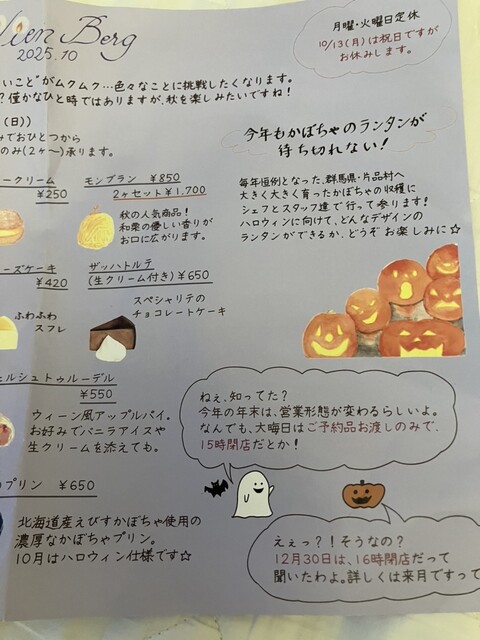 Wien Berg
2025.10
月曜・火曜日定休
10/13(月)は祝日ですが
お休みします。
いこと”がムクムク…色々なことに挑戦したくなります。
?僅かなひと時ではありますが、秋を楽しみたいですね!
(日))
みでおひとつから
のみ(2ヶ〜)承ります。
今年もかぼちゃのランタンが
待ち切れない!
毎年恒例となった、群馬県・片品村へ
大きく大きく育ったかぼちゃの収穫に
シェフとスタッフ達で行って参ります!
ハロウィンに向けて、どんなデザインの
ランタンができるか、どうぞお楽しみに☆
ークリーム
¥250
モンブラン ¥850
2ヶセット¥1,700
秋の人気商品!
和栗の優しい香りが
お口に広がります。
ーズケーキ
¥420
ふわふわ
スフレ
ザッハトルテ
(生クリーム付き)¥650
スペシャリテの
チョコレートケーキ
ェルシュトゥルーデル
¥550
ウィーン風アップルパイ。
お好みでバニラアイスや
生クリームを添えても。
プリン ¥650
北海道産えびすかぼちゃ使用の
濃厚なかぼちゃプリン。
10月はハロウィン仕様です☆
ねぇ、知ってた?
今年の年末は、営業形態が変わるらしいよ。
なんでも、大晦日はご予約品お渡しのみで、
15時閉店だとか!
えぇっ?!そうなの?
12月30日は、16時閉店だって
聞いたわよ。詳しくは来月ですって